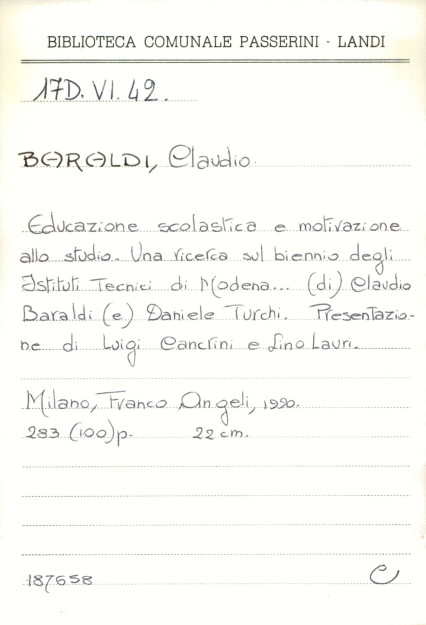 BIBLIOTECA COMUNALE PASSERINI - LANDI
17D. VI. 42.
BARALDI, Claudio.
Educazione scolastica e motivazione
allo studio. Una ricerca sul biennio degli
Istituti Tecnici di Modena... (di) Claudio
Baraldi (e) Daniele Turchi. Presentazio-
ne di Luigi Cancrini e Lino Lauri.
Milano, Franco Angeli, 1990.
283 (100)p. 22 cm.
187658 C